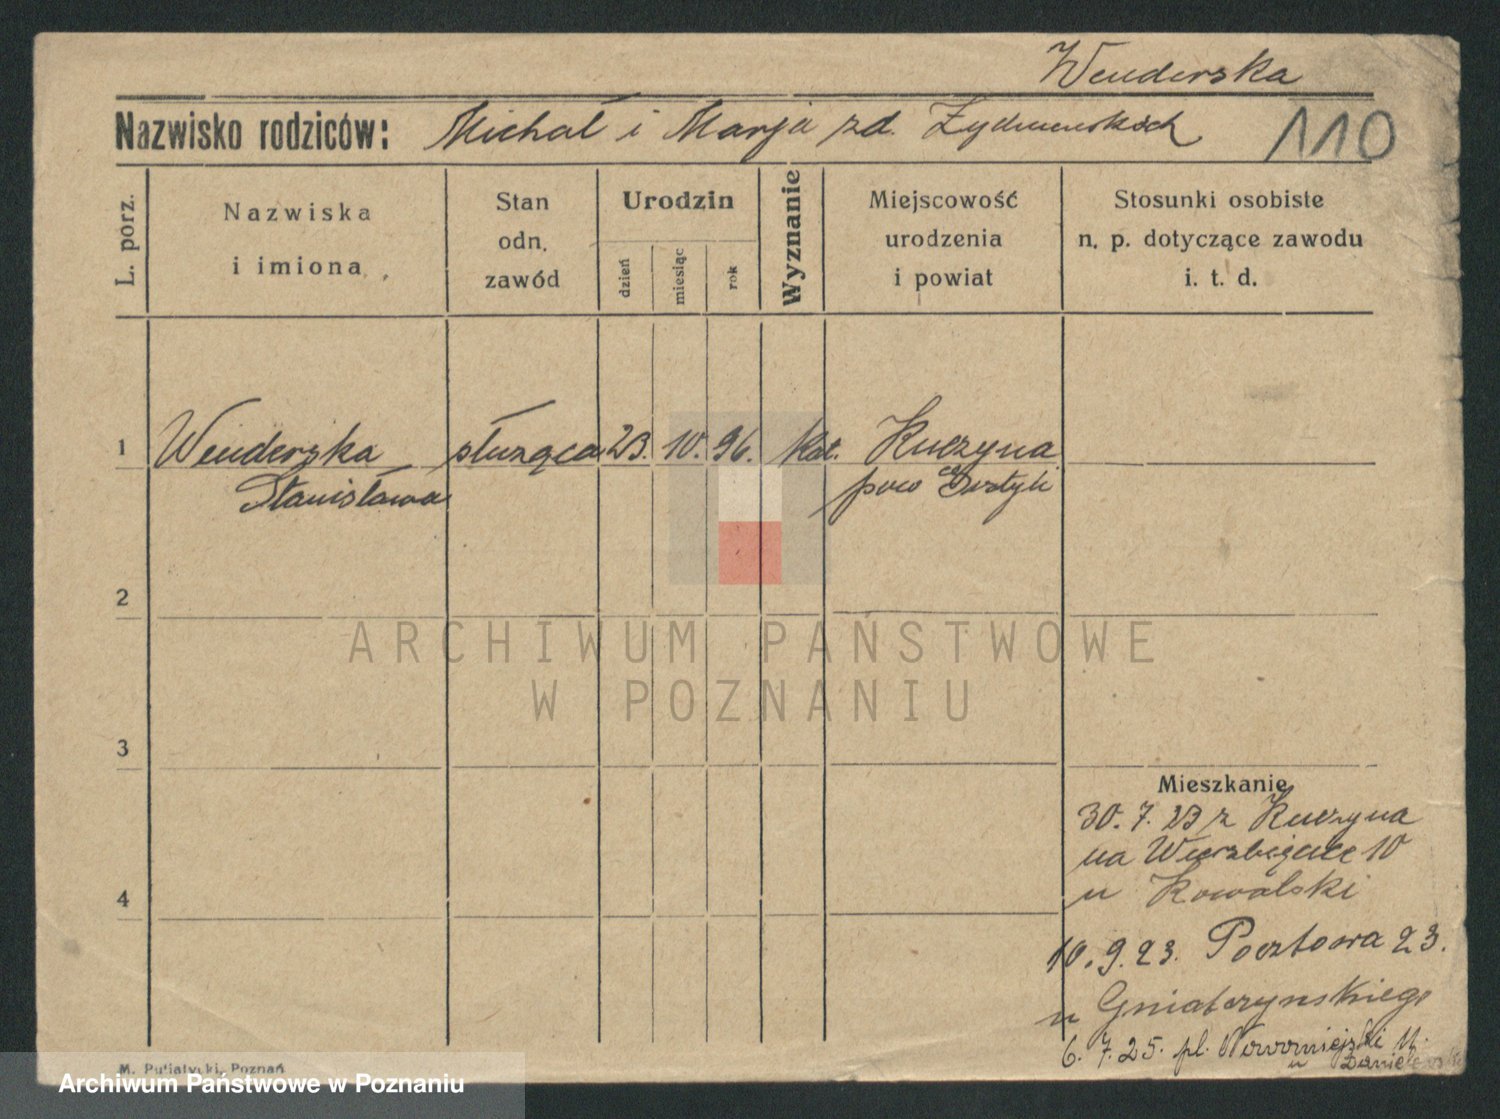 Wenderska
Nazwisko rodziców: Michał i Marja zd.
110
L. porz.
Nazwiska
i imiona
Stan
odn.
zawód
Urodzin
dzień
miesiąc
rok
Wyznanie
Miejscowość
urodzenia
i powiat
Stosunki osobiste
n. p. dotyczące zawodu
i. t. d.
1 Wenderska służąca 23. 10. 96. kat. Kuczyna
Stanisława pow Gostyń
2
3
4
Mieszkanie
30. 7. 23 z Kuczyna
na Wierzbięcice 10
u Kowalski
10. 9. 23. Pocztowa 23.
u Gniatczyńskiego
6. 7. 25. pl. Nowomiejski 11.
u
ARCHIWUM PAŃSTWOWE
W POZNANIU
M. Putiatycki, Poznań
Archiwum Państwowe w Poznaniu